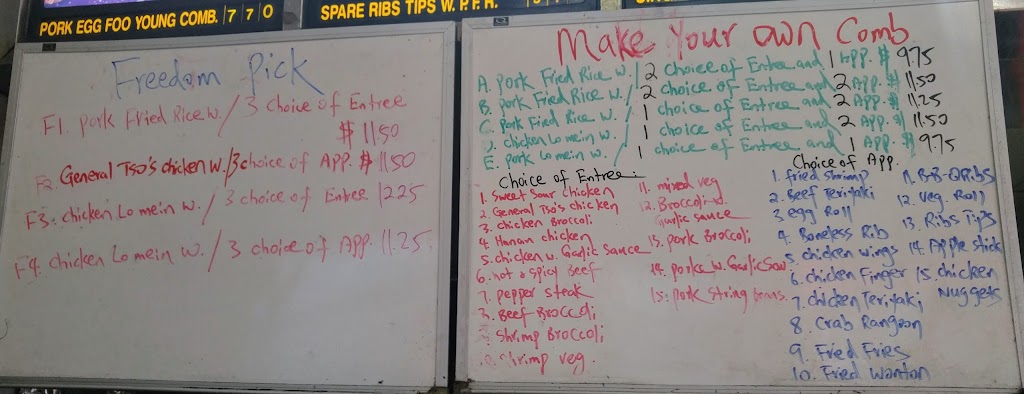 PORK EGG FOO YOUNG COMB. 7 7 0
SPARE RIBS TIPS W. P.F.R.
Freedom Pick
F1. Pork Fried Rice w. / 3 choice of Entree
$11.50
F2. General TSO'S chicken w. / 3 choice of APP. $11.50
F3. chicken Lo mein w. / 3 choice of Entree 12.25
F4. chicken Lo mein w. / 3 choice of APP. 11.25
Make Your own Comb
A. Pork Fried Rice w. / 2 choice of Entree and 1 App. $ 9.75
B. Pork Fried Rice w. / 2 choice of Entree and 2 APP. $ 11.50
C. Pork Fried Rice w. / 1 choice of Entree and 2 APP. $ 11.25
D. chicken Lo mein w. / 1 choice of Entree and 2 APP. $ 11.50
E. Pork Lo mein w. / 1 choice of Entree and 1 APP. $ 9.75
Choice of Entree:
1. Sweet Sour Chicken
2. General TSO's chicken
3. chicken Broccoli
4. Hunan chicken
5. chicken w. Garlic Sauce
6. hot & Spicy Beef
7. pepper steak
8. Beef Broccoli
9. Shrimp Broccoli
10. Shrimp veg.
11. mixed veg
12. Broccoli w.
Garlic sauce
13. pork Broccoli
14. pork w. Garlic Sau
15. pork string beans.
Choice of App.
1. fried Shrimp
2. Beef Teriyaki
3. egg Roll
4. Boneless Rib
5. chicken wings
6. chicken Finger
7. chicken Teriyaki
8. Crab Rangoon
9. Fried Fries
10. Fried Wonton
11. B-B-Q Ribs
12. Veg. Roll
13. Ribs Tips
14. Apple stick
15. chicken
Nuggets